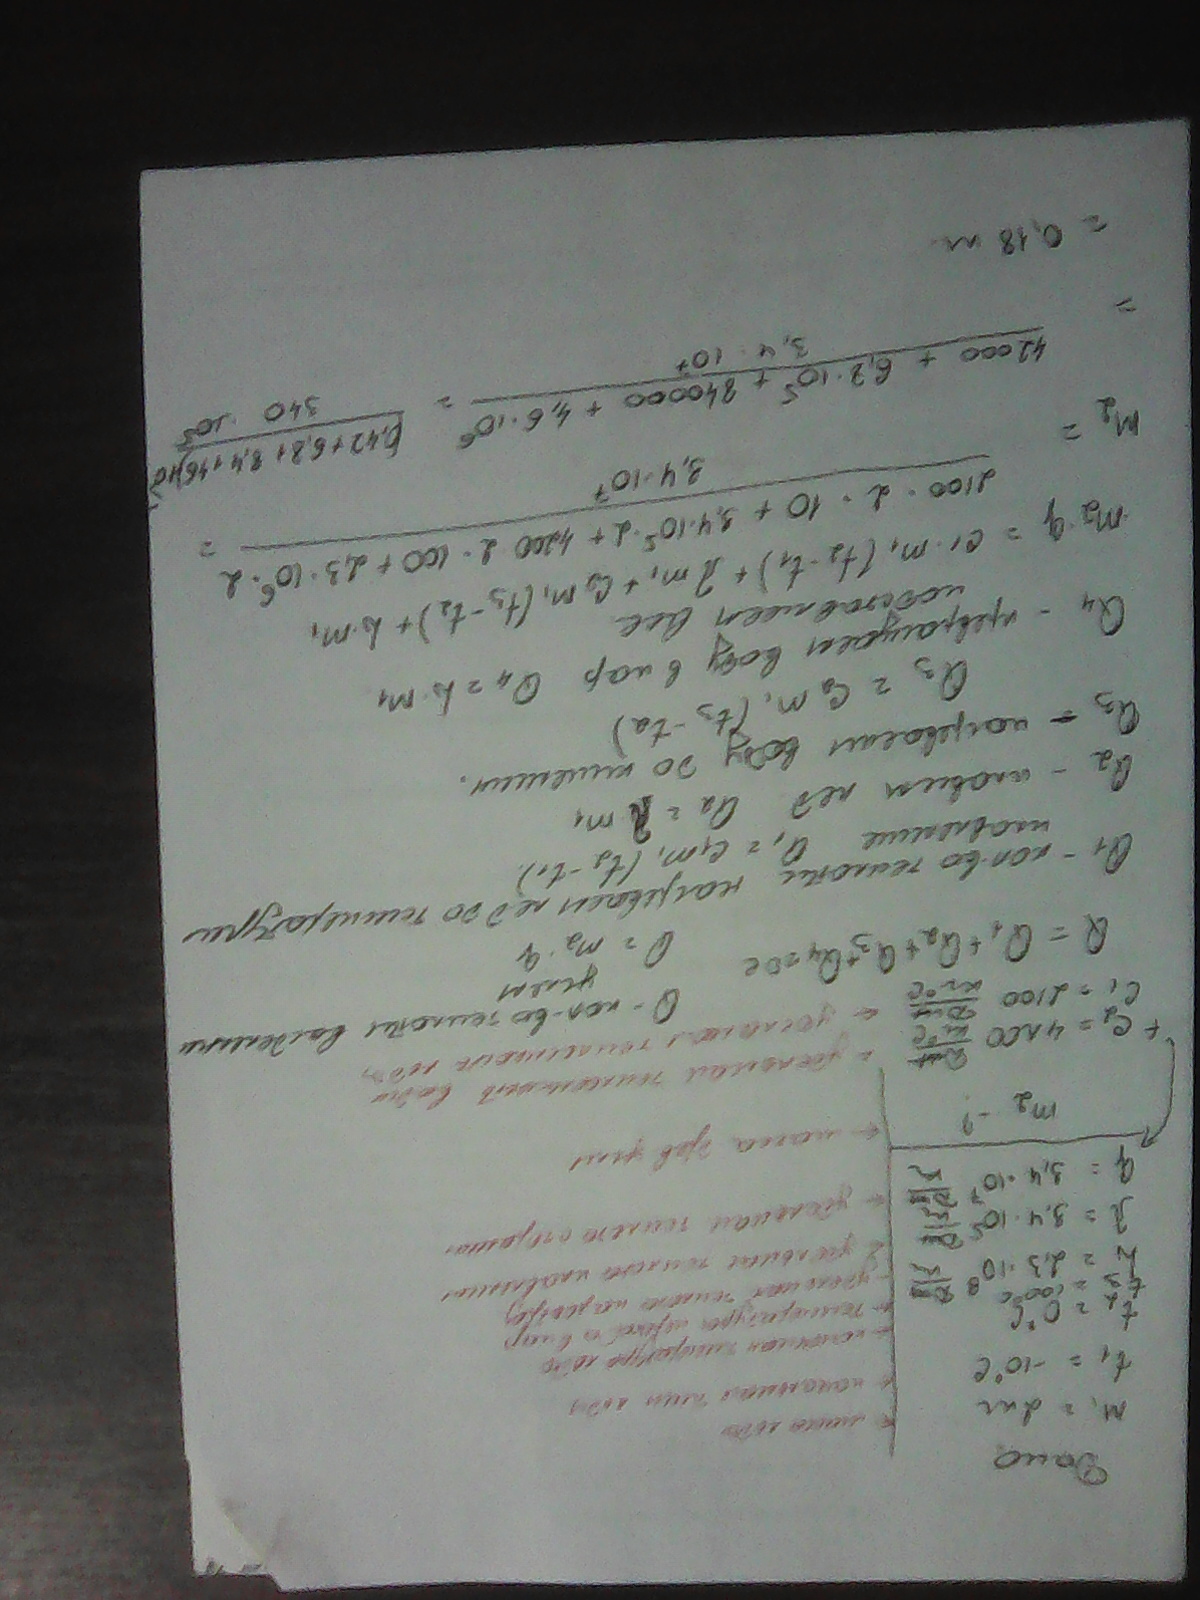 Дано
m₁ = 2 кг ← масса льда
t₁ = -10°C ← начальная темп льда
t₂ = 0°C ← конечная температура льда
t₃ = 100°C ← температура перех в пар
L = 2,3·10⁶ Дж/кг
λ = 3,4·10⁵ Дж/кг ← удельная теплота плавления
q = 3,4·10⁷ Дж/кг ← удельная теплота сгорания
m₂ - ? ← масса дров
+ C₂ = 4200 Дж/кг°C ← удельная теплоемкость воды
C₁ = 2100 Дж/кг°C ← удельная теплоемкость льда
Q - кол-во теплоты
Q = Q₁ + Q₂ + Q₃ + Q₄ Q = m₂·q
Q₁ - кол-во теплоты, нагреваем лед до температуры
плавления Q₁ = C₁m₁(t₂-t₁)
Q₂ - плавим лед Q₂ = λ m₁
Q₃ - нагреваем воду до кипения.
Q₃ = C₂ m₁ (t₃-t₂)
Q₄ - превращаем воду в пар Q₄ = L·m₁
все
m₂·q = C₁·m₁(t₂-t₁) + λm₁ + C₂m₁(t₃-t₂) + L·m₁
m₂ = 2100·2·10 + 3,4·10⁵·2 + 4200·2·100 + 2,3·10⁶·2 / 3,4·10⁷ =
= 42000 + 6,8·10⁵ + 840000 + 4,6·10⁶ / 3,4·10⁷ = (0,42+6,8+8,4+46)·10⁵ / 340·10⁵ =
= 0,18 кг